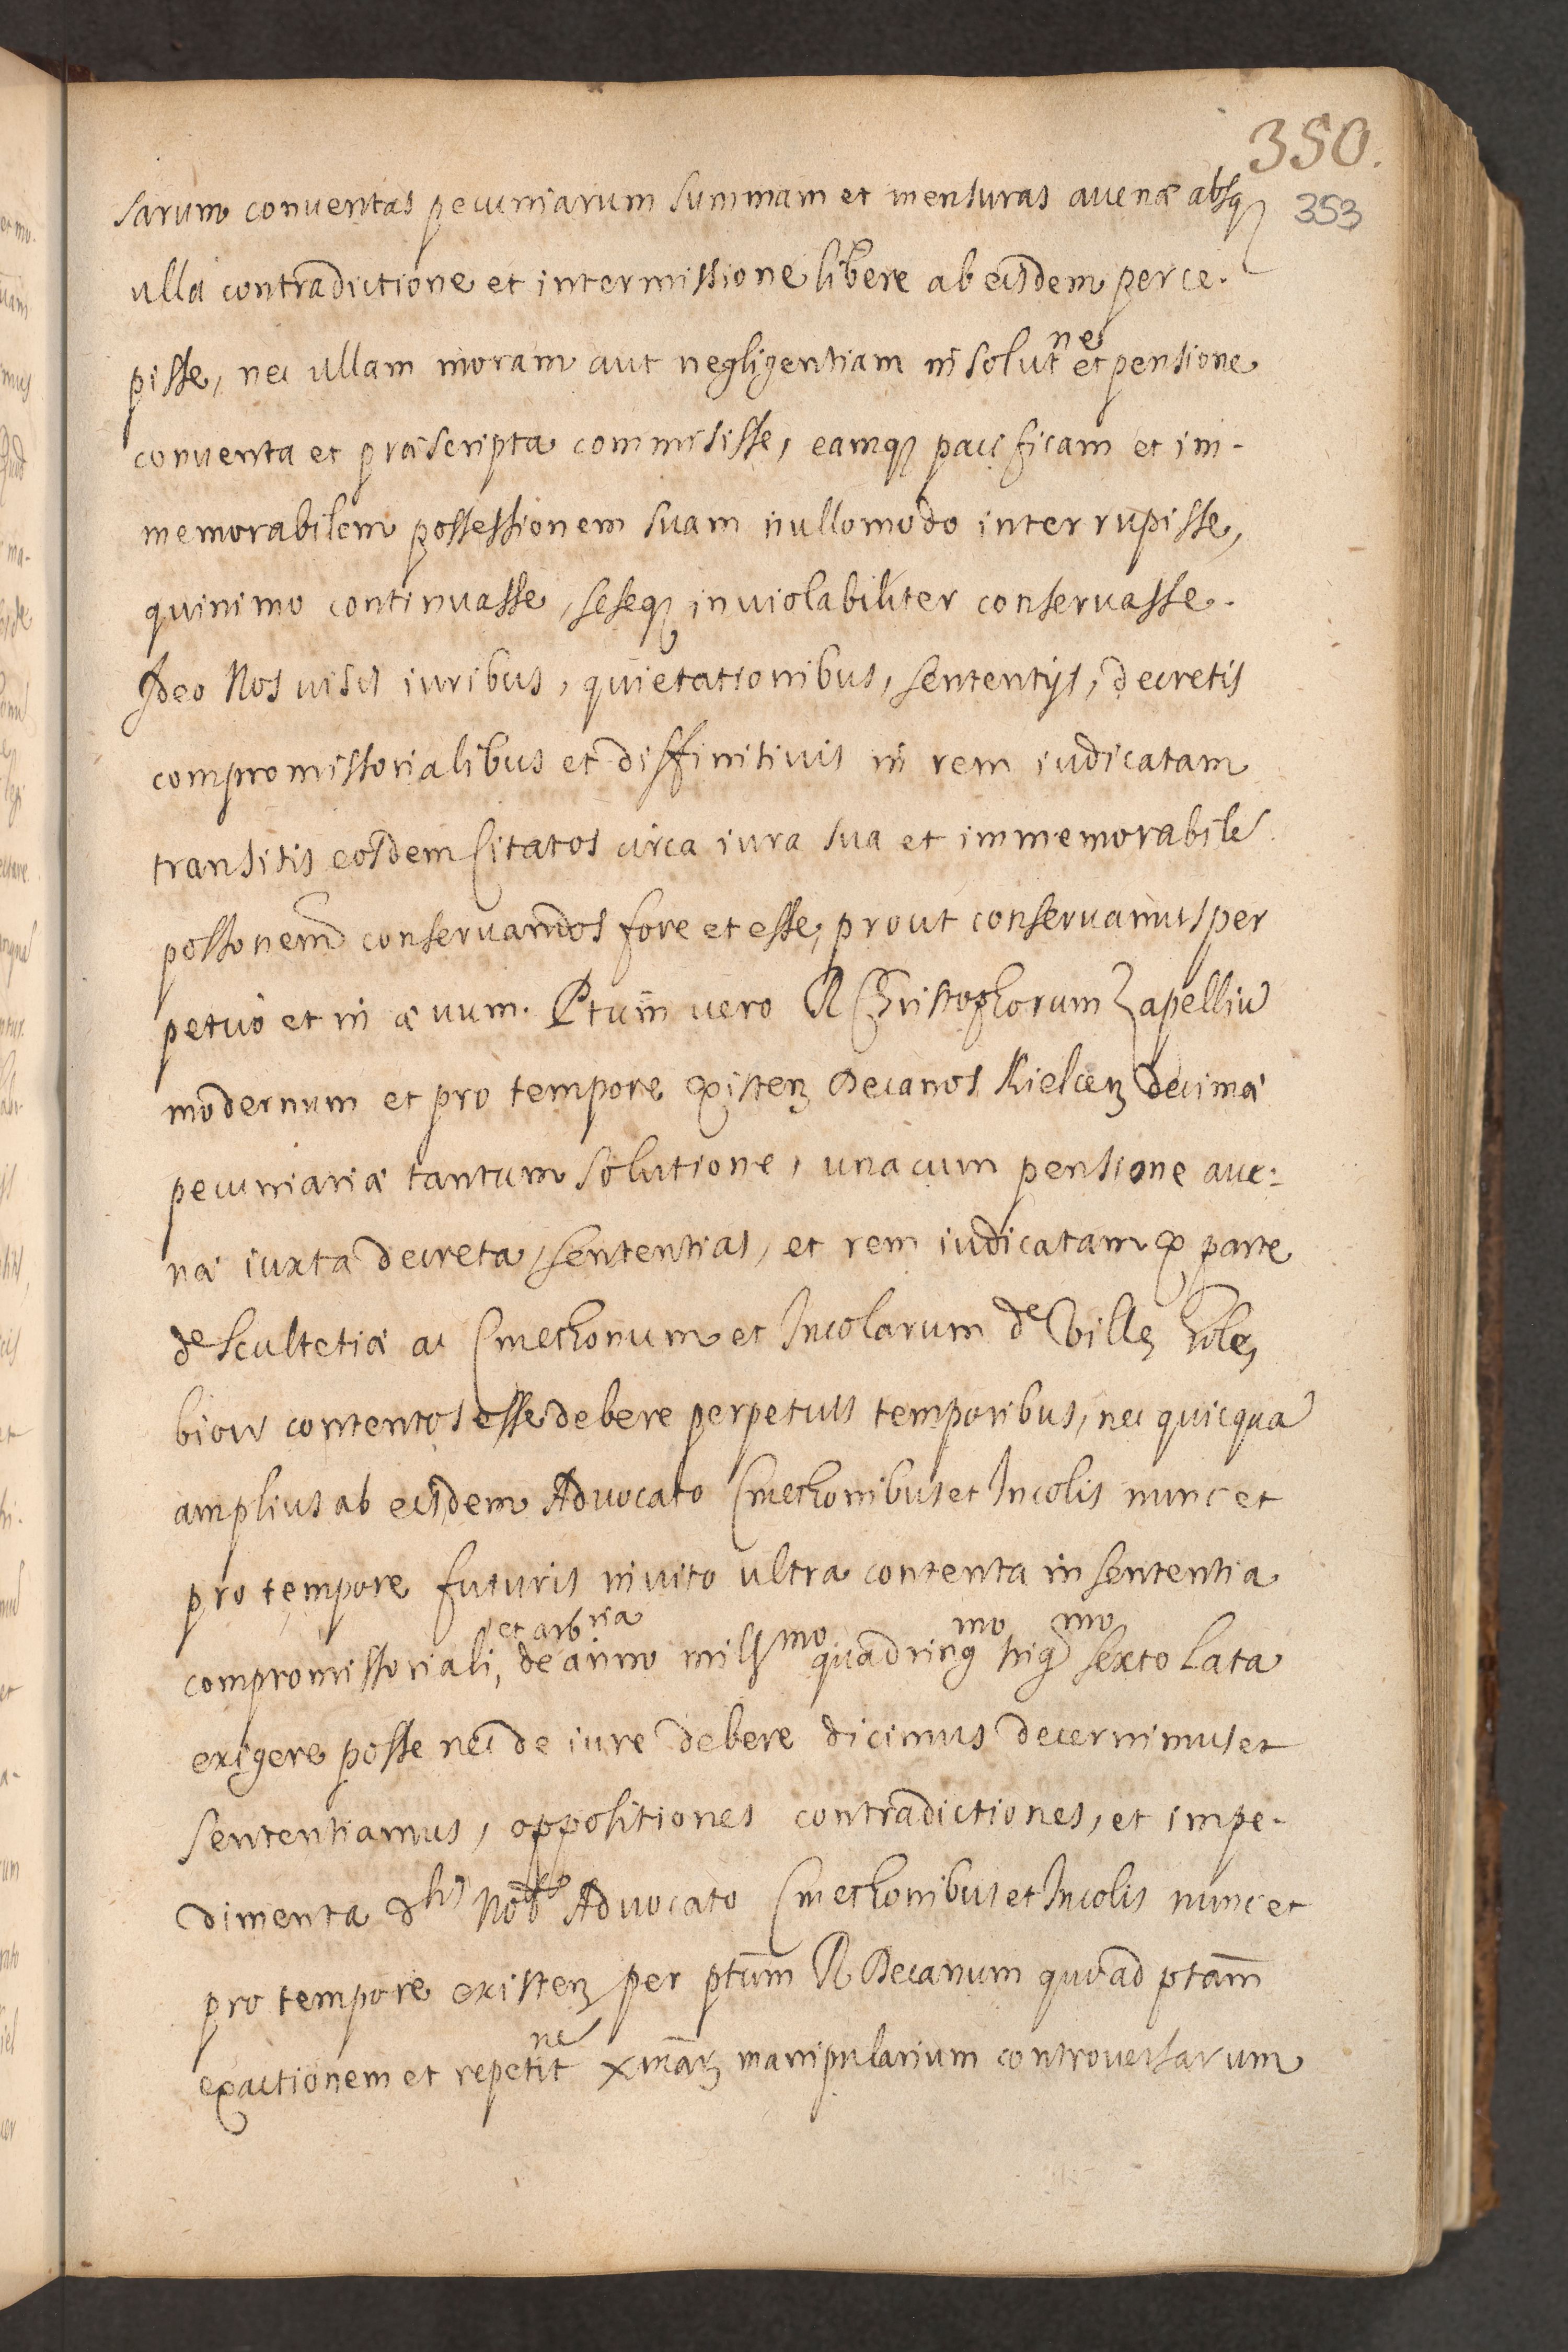 350.
353
sarum conuentas pecuniarum summam et mensuras auenæ absq₃
ulla contradictione et intermissione libere ab eisdem perce-
pisse, nec ullam moram aut negligentiam in solutne et pensione
conuenta et præscripta commisisse, eamq₃ pacificam et im-
memorabilem possessionem suam nullomodo interrupisse,
quinimo continuasse, seseq₃ inuiolabiliter conseruasse.
Ideo Nos uisis iuribus, quietationibus, sententijs, decretis
compromissorialibus et diffinitiuis in rem iudicatam
transitis eosdem Citatos circa iura sua et immemorabilē
possonem̄ conseruandos fore et esse, prout conseruamus per
petuo et in æuum. Ptum̄ uero R Christophorum Zapelliū
modernum et pro tempore existen₃ Decanos Kielcen₃ decimæ
pecuniariæ tantum solutione, unacum pensione aue-
næ iuxta decreta, sententias, et rem iudicatam ex parte
de Scultetiæ ac Cmethonum et Incolarum de Villæ
biow contentos esse debere perpetuis temporibus, nec quicquā
amplius ab eisdem Aduocato Cmethonibus et Incolis nunc et
pro tempore futuris inuito ultra contenta in sententia
et arbria
compromissoriali, de anno millmo quadringmo trigmo sexto lata
exigere posse nec de iure debere dicimus decernimus et
sententiamus, oppositiones contradictiones, et impe-
dimenta dhis Nob Aduocato Cmethonibus et Incolis nunc et
pro tempore existen₃ per ptum̄ R Decanum quoad ptam̄
exactionem et repetitne xmār₃ manipularium controuersarum